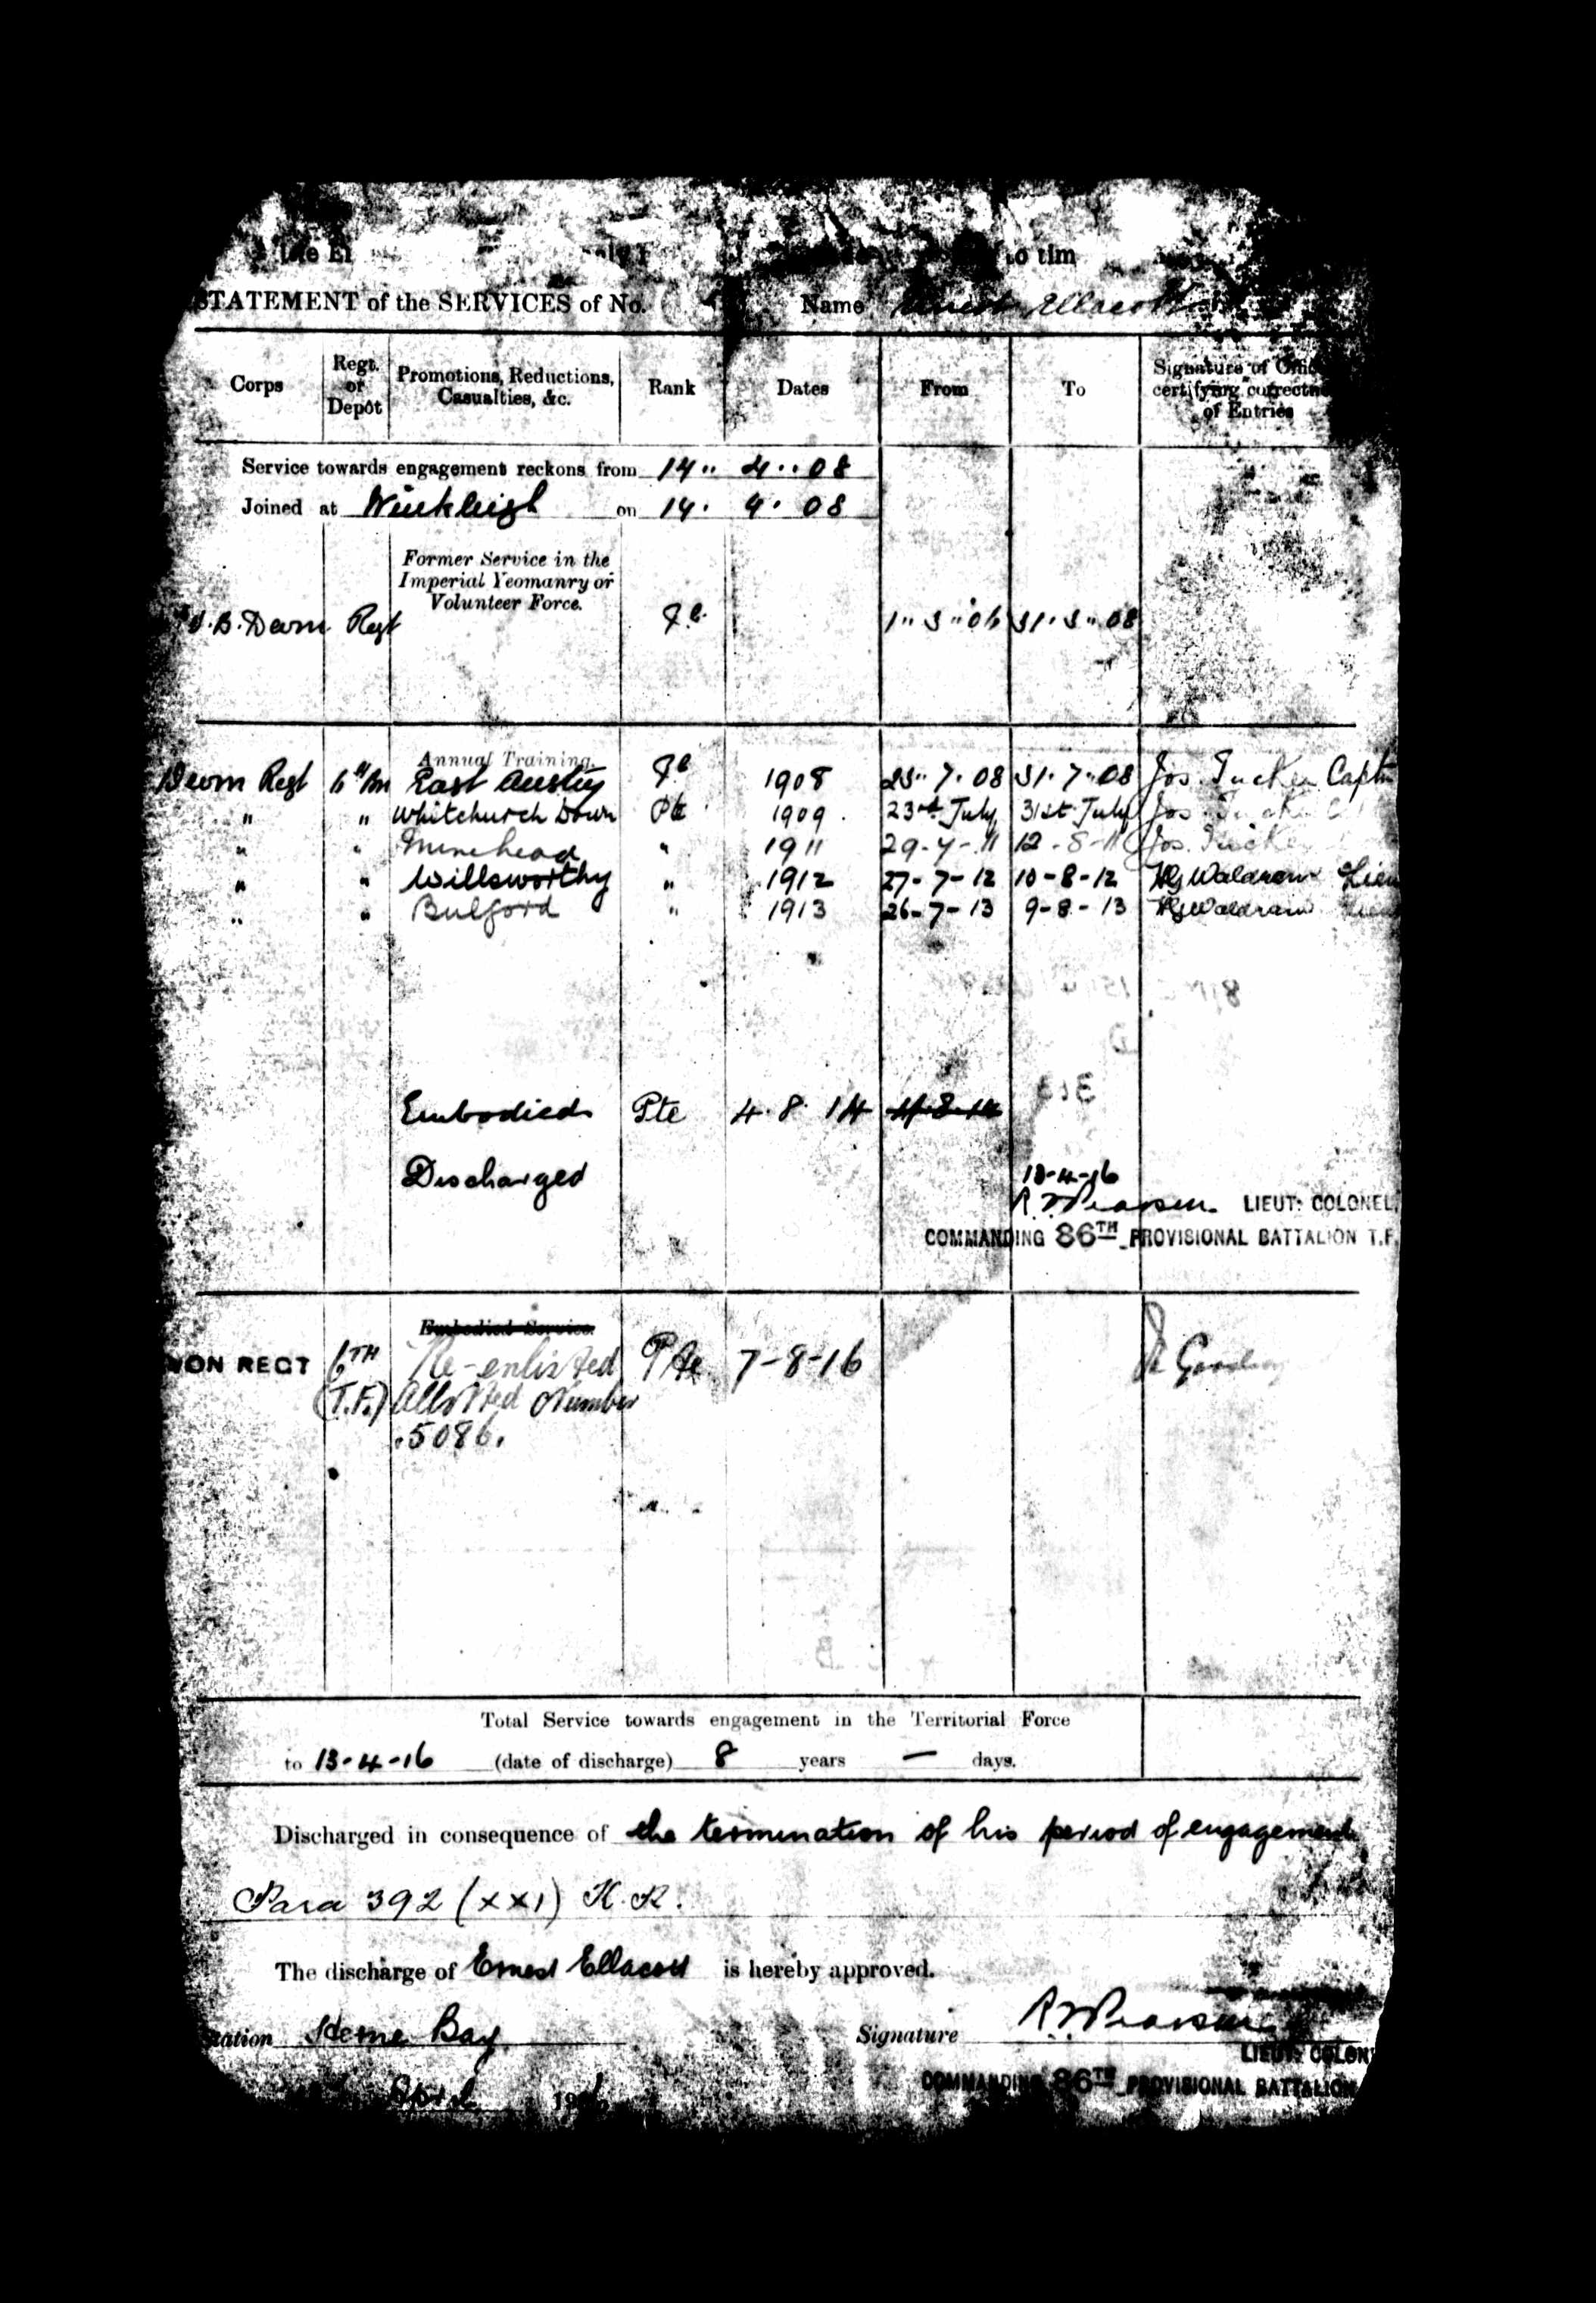 the
to tim
STATEMENT of the SERVICES of No. Name Ernest Ellacott
Corps Regt. or Depôt Promotions, Reductions, Casualties, &c. Rank Dates From To Signature of certifying of Entries
Service towards engagement reckons from 14" 4" 08
Joined at Winkleigh on 14. 4. 08
Former Service in the
Imperial Yeomanry or
Volunteer Force.
V.B. Devon Regt 31. 3" 08
Annual Training.
Devon Regt 6th Bn East 1908 23" 7. 08 31. 7" 08 Jos. Tucker Captn
" " Whitchurch Down Pte 1909. 23rd July 31st July Jos. Tucker
" " Minehead " 1911 29-7-11 12-8-11 Jos. Tucker
" " Willsworthy " 1912 27-7-12 10-8-12 Waldram Lieu
" " Bulford " 1913 26-7-13 9-8-13 Waldram
Embodied Pte 4. 8. 14 4.8.14
Discharged 13-4-16
LIEUT: COLONEL,
COMMANDING 86TH PROVISIONAL BATTALION T.F.
Embodied Service.
VON REGT 6TH Re-enlisted Pte 7-8-16
(T.F.) Allotted Number
5086.
Total Service towards engagement in the Territorial Force
to 13-4-16 (date of discharge) 8 years — days.
Discharged in consequence of the termination of his period of engagement
Para 392 (XXI) K.R.
The discharge of Ernest Ellacott is hereby approved.
tation Herne Bay Signature
LIEUT: COLON
April 191
COMMANDING 86TH PROVISIONAL BATTALION